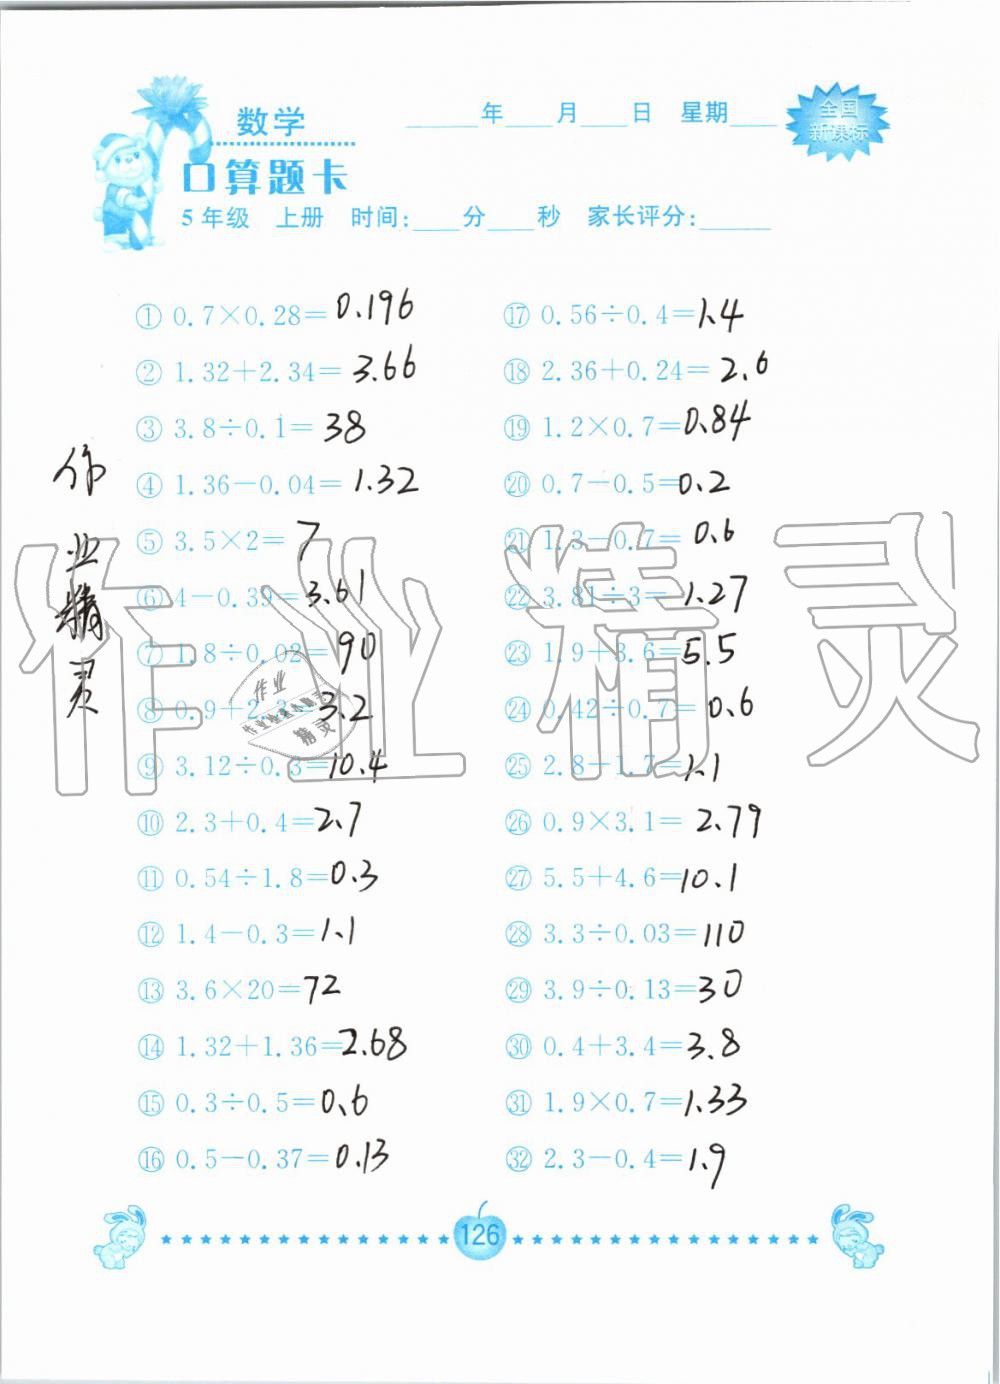 数学
口算题卡
____年____月____日 星期____
全国
新课标
5年级 上册 时间:____分____秒 家长评分:____
① 0.7×0.28=0.196
② 1.32+2.34=3.66
③ 3.8÷0.1=38
④ 1.36-0.04=1.32
⑤ 3.5×2=7
⑥ 4-0.39=3.61
⑦ 1.8÷0.02=90
⑧ 0.9+2.3=3.2
⑨ 3.12÷0.3=10.4
⑩ 2.3+0.4=2.7
⑪ 0.54÷1.8=0.3
⑫ 1.4-0.3=1.1
⑬ 3.6×20=72
⑭ 1.32+1.36=2.68
⑮ 0.3÷0.5=0.6
⑯ 0.5-0.37=0.13
⑰ 0.56÷0.4=1.4
⑱ 2.36+0.24=2.6
⑲ 1.2×0.7=0.84
⑳ 0.7-0.5=0.2
㉑ 1.3-0.7=0.6
㉒ 3.81÷3=1.27
㉓ 1.9+3.6=5.5
㉔ 0.42÷0.7=0.6
㉕ 2.8-1.7=1.1
㉖ 0.9×3.1=2.79
㉗ 5.5+4.6=10.1
㉘ 3.3÷0.03=110
㉙ 3.9÷0.13=30
㉚ 0.4+3.4=3.8
㉛ 1.9×0.7=1.33
㉜ 2.3-0.4=1.9
作业精灵
作业精灵
作业
精灵
126